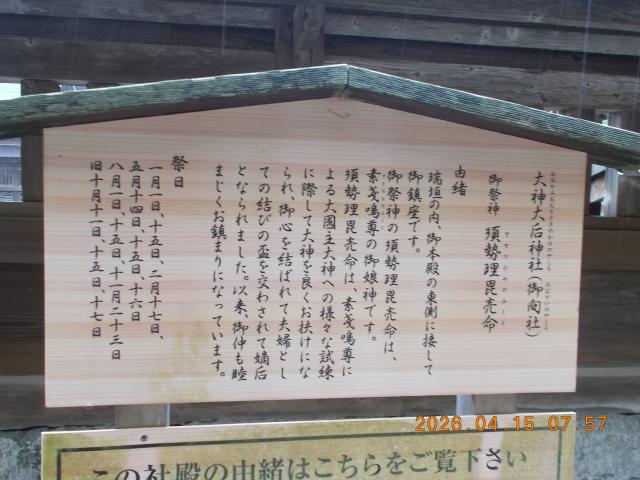 大神大后神社（御向社）
御祭神 須勢理毘売命
すせりひめのみこと
由緒
瑞垣の内、御本殿の東側に接して
御鎮座です。
御祭神の須勢理毘売命は、
素戔嗚尊の御娘神です。
須勢理毘売命は、素戔嗚尊に
よる大國主大神への様々な試練
に際して大神を良くお扶けにな
られ、御心を結ばれて夫婦とし
ての結びの盃を交わされて嫡后
となられました。以来、御仲も睦
まじくお鎮まりになっています。
祭日
一月一日、十五日、二月十七日、
五月十四日、十五日、十六日
八月一日、十五日、十一月二十三日
旧十月十一日、十五日、十七日
2026.04.15 07:57
この社殿の由緒はこちらをご覧下さい